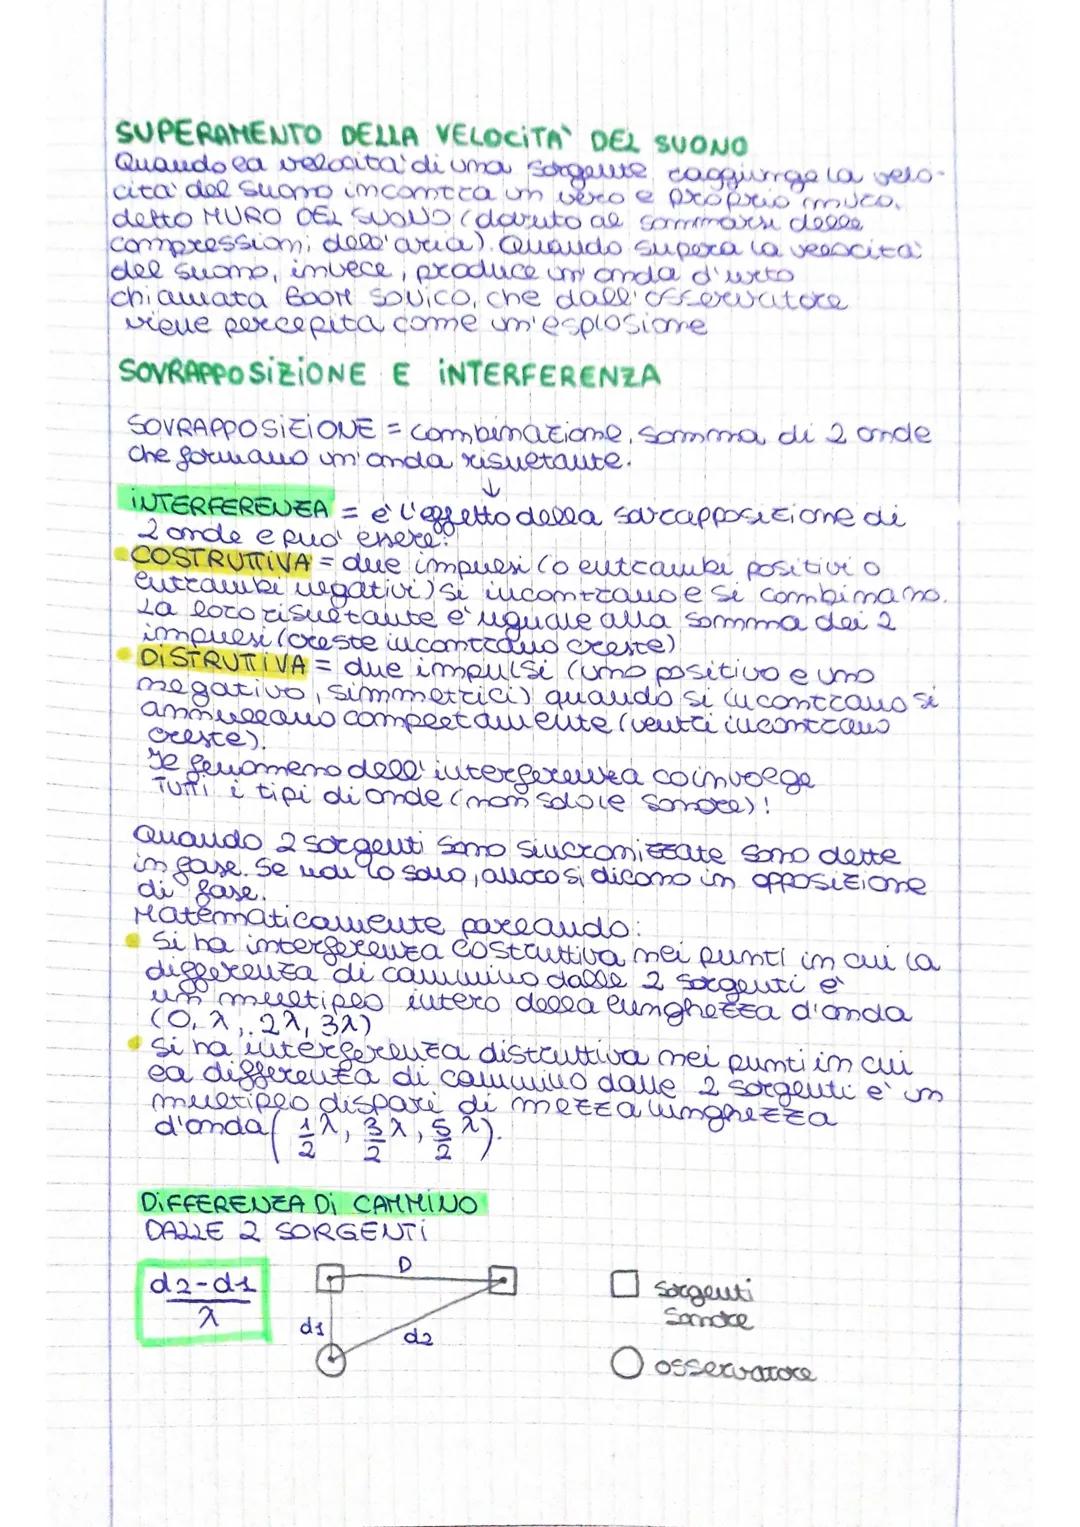 SUPERAMENTO DELLA VELOCITA' DEL SUONO
Quando la velocita' di una sorgente raggiunge la velo-
cita' del suono incontra un vero e proprio muro,
detto MURO DEL SUONO (dovuto al sommarsi delle
compressioni dell'aria). Quando supera la velocita'
del suono, invece, produce un'onda d'urto
chiamata BOOM SONICO, che dall'osservatore
viene percepita come un'esplosione
SOVRAPPOSIZIONE E INTERFERENZA
SOVRAPPOSIZIONE = combinazione, somma di 2 onde
che formano un'onda risultante.
↓
INTERFERENZA = e' l'effetto della sovrapposizione di
2 onde e puo' essere:
COSTRUTTIVA = due impulsi (o entrambi positivi o
entrambi negativi) si incontrano e si combinano.
La loro risultante e' uguale alla somma dei 2
impulsi (creste incontrano creste)
DISTRUTTIVA = due impulsi (uno positivo e uno
negativo, simmetrici) quando si incontrano si
annullano completamente (ventri incontrano
creste).
Il fenomeno dell'interferenza coinvolge
TUTTI i tipi di onde (non solo le sonore)!
Quando 2 sorgenti sono sincronizzate sono dette
in fase. Se non lo sono, allora si dicono in opposizione
di fase.
Matematicamente parlando:
Si ha interferenza costruttiva nei punti in cui la
differenza di cammino dalle 2 sorgenti e'
un multiplo intero della lunghezza d'onda
(0, λ, 2λ, 3λ)
Si ha interferenza distruttiva nei punti in cui
la differenza di cammino dalle 2 sorgenti e' un
multiplo dispari di mezza lunghezza
d'onda (1/2 λ, 3/2 λ, 5/2 λ).
DIFFERENZA DI CAMMINO
DALLE 2 SORGENTI
d2-d1
λ
D
d1
d2
sorgenti
sonore
osservatore